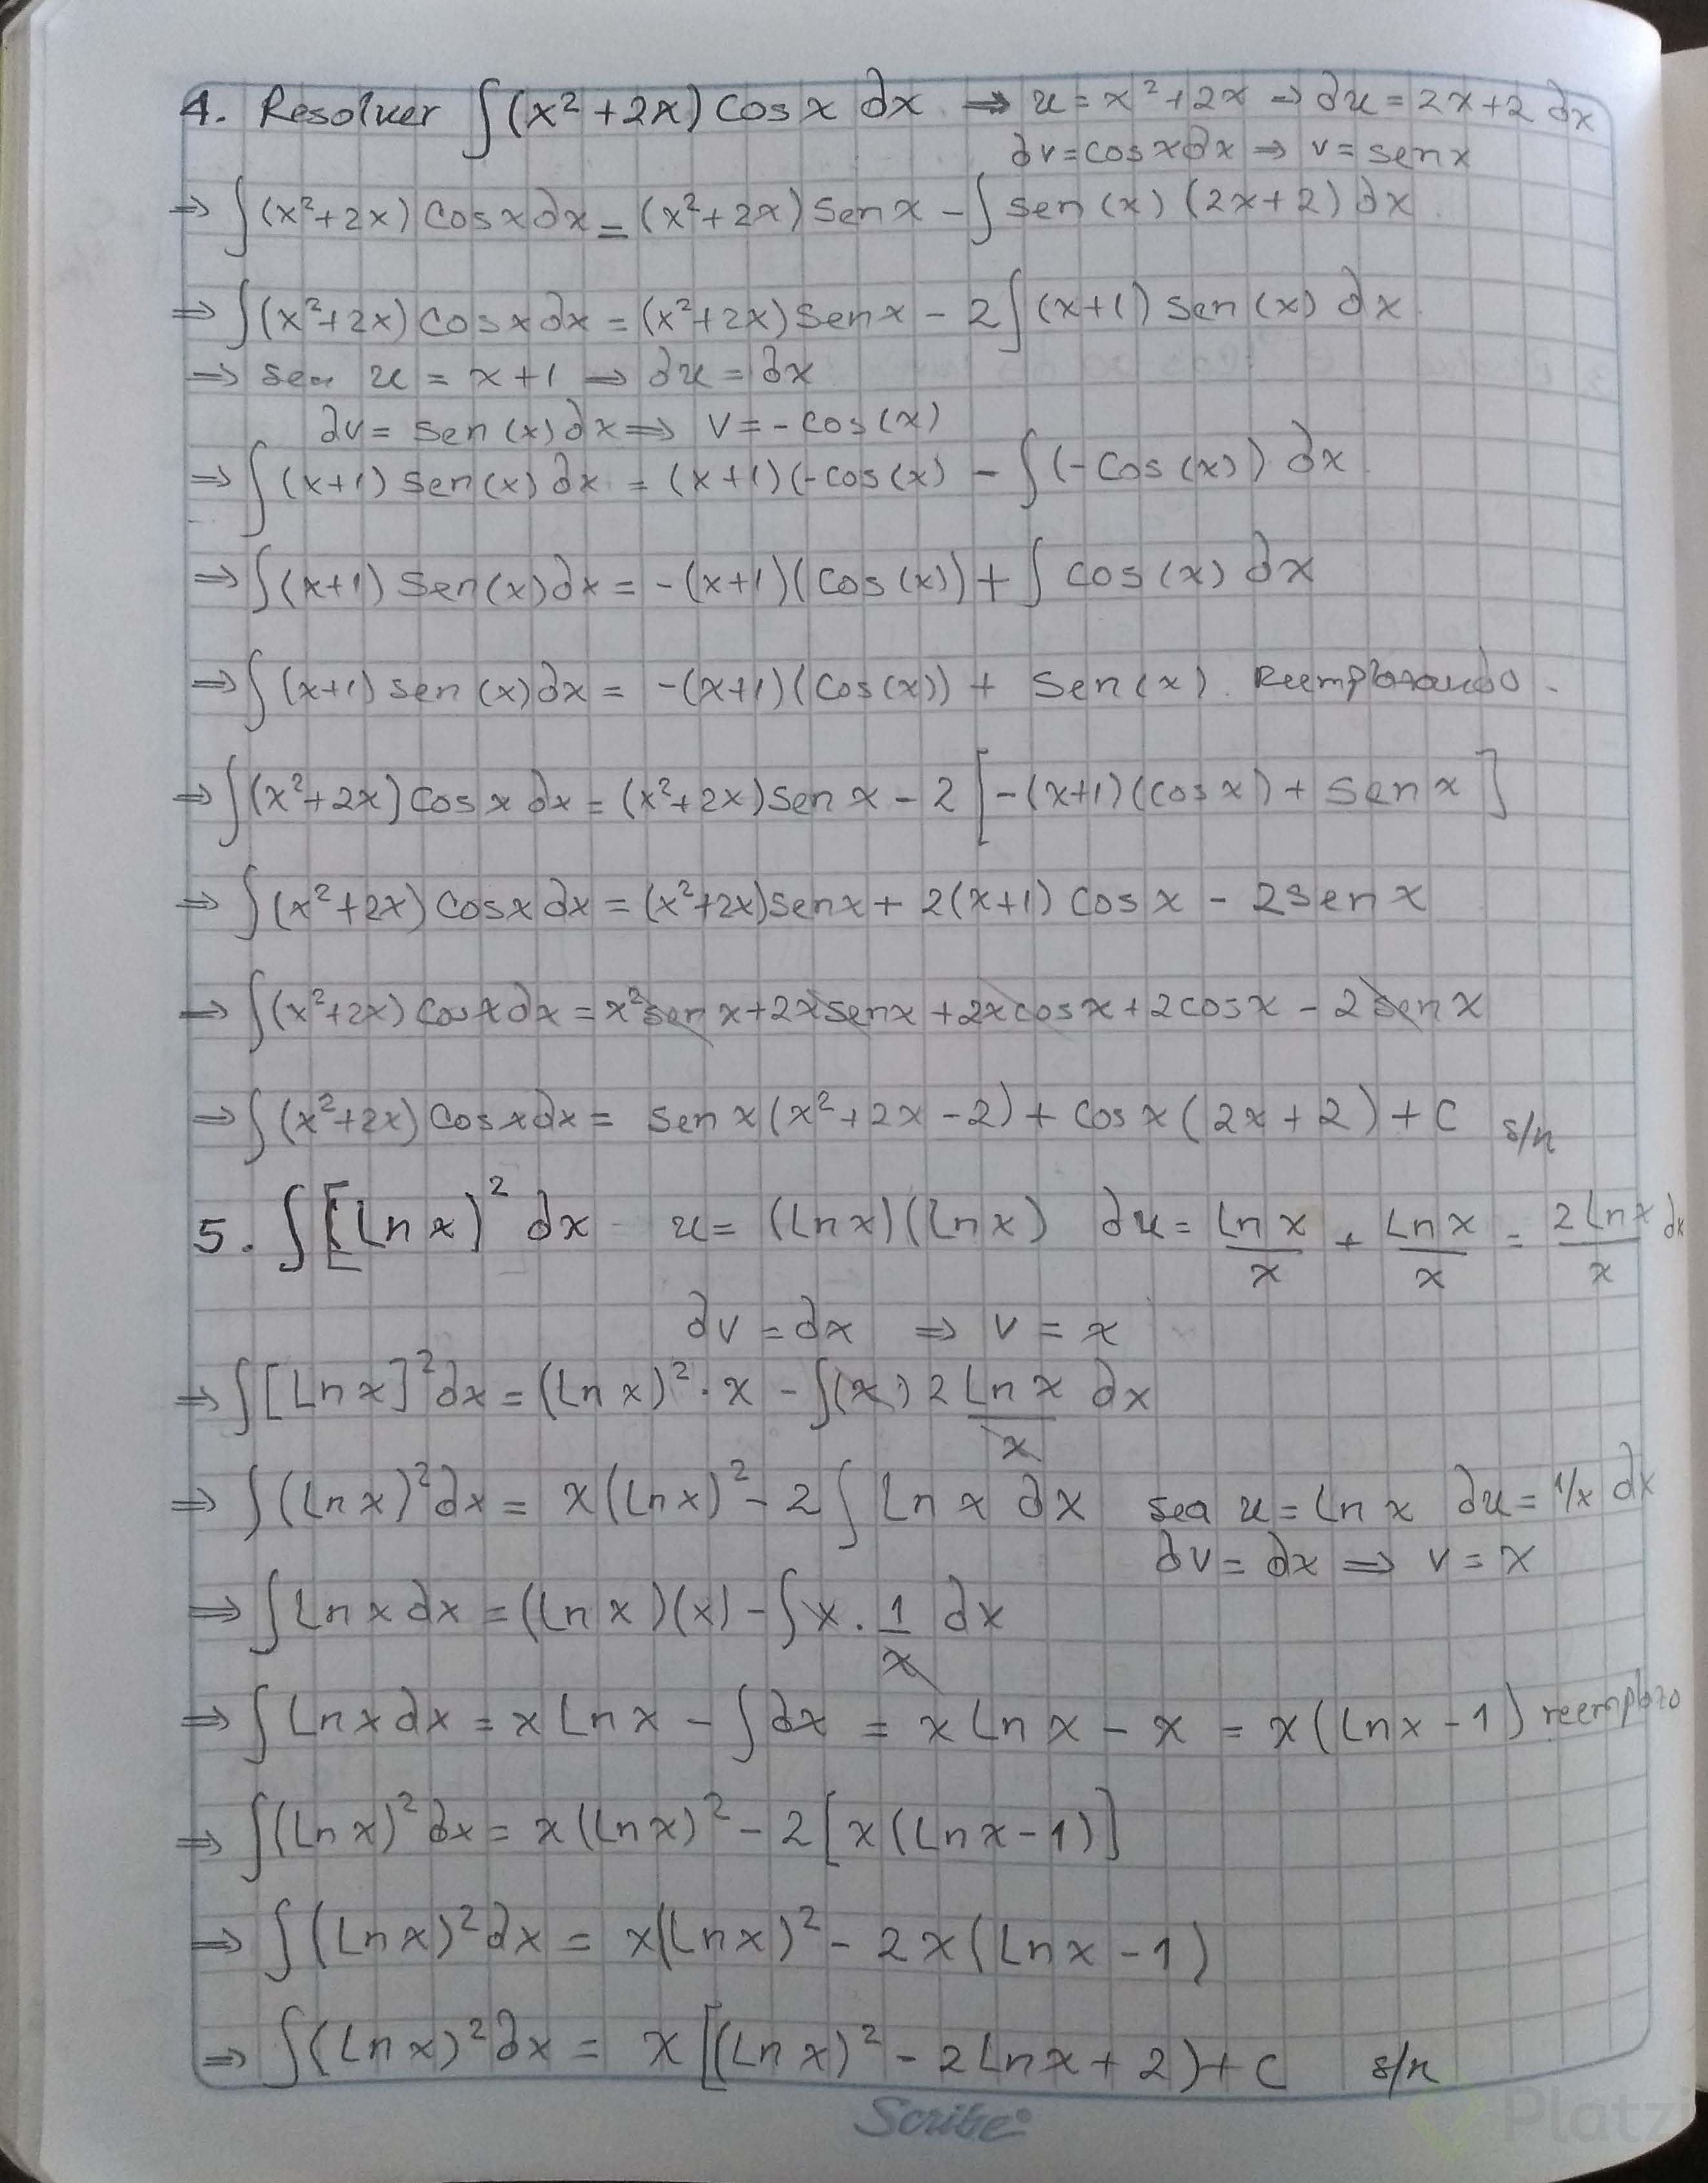 4. Resolver ∫(x²+2x) cos x ∂x ⇒ u = x²+2x ⇒ ∂u = 2x+2 ∂x
∂v = cos x ∂x ⇒ v = sen x
⇒ ∫(x²+2x) cos x ∂x = (x²+2x) sen x - ∫ sen (x) (2x+2) ∂x
⇒ ∫(x²+2x) cos x ∂x = (x²+2x) sen x - 2∫(x+1) sen (x) ∂x
⇒ sea u = x+1 ⇒ ∂u = ∂x
∂v = sen (x) ∂x ⇒ v = -cos(x)
⇒ ∫(x+1) sen(x) ∂x = (x+1)(-cos(x) - ∫(-cos(x)) ∂x
⇒ ∫(x+1) sen(x) ∂x = -(x+1)(cos(x)) + ∫ cos(x) ∂x
⇒ ∫(x+1) sen (x) ∂x = -(x+1)(cos(x)) + sen(x). Reemplazando.
⇒ ∫(x²+2x) cos x ∂x = (x²+2x) sen x - 2[-(x+1)(cos x) + sen x]
⇒ ∫(x²+2x) cos x ∂x = (x²+2x) sen x + 2(x+1) cos x - 2 sen x
⇒ ∫(x²+2x) cos x ∂x = x² sen x + 2x sen x + 2x cos x + 2 cos x - 2 sen x
⇒ ∫(x²+2x) cos x ∂x = sen x (x²+2x-2) + cos x (2x+2) + C s/n
5. ∫[Ln x)² ∂x u = (Ln x)(Ln x) ∂u = Ln x/x + Ln x/x = 2 Ln x/x ∂x
∂v = ∂x ⇒ v = x
⇒ ∫[Ln x]² ∂x = (Ln x)² · x - ∫(x) 2 Ln x/x ∂x
⇒ ∫(Ln x)² ∂x = x(Ln x)² - 2∫ Ln x ∂x sea u = Ln x ∂u = 1/x ∂x
∂v = ∂x ⇒ v = x
⇒ ∫ Ln x ∂x = (Ln x)(x) - ∫ x · 1/x ∂x
⇒ ∫ Ln x ∂x = x Ln x - ∫ ∂x = x Ln x - x = x(Ln x - 1) reemplazo
⇒ ∫(Ln x)² ∂x = x(Ln x)² - 2[x(Ln x - 1)]
⇒ ∫(Ln x)² ∂x = x(Ln x)² - 2x(Ln x - 1)
⇒ ∫(Ln x)² ∂x = x[(Ln x)² - 2 Ln x + 2) + C s/n
Scribe
Platzi